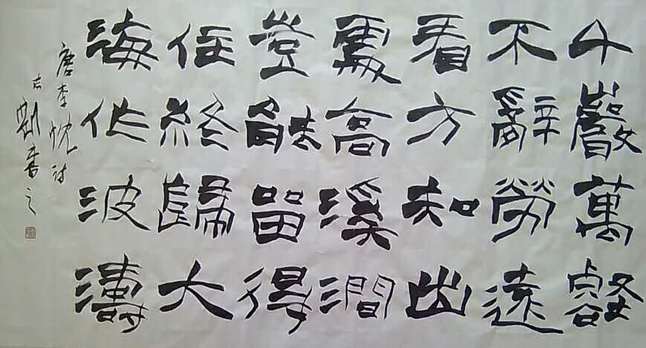 千巖萬壑
不辭勞遠
看方知出
處高溪澗
豈能留得
住終歸大
海作波濤
唐李忱诗